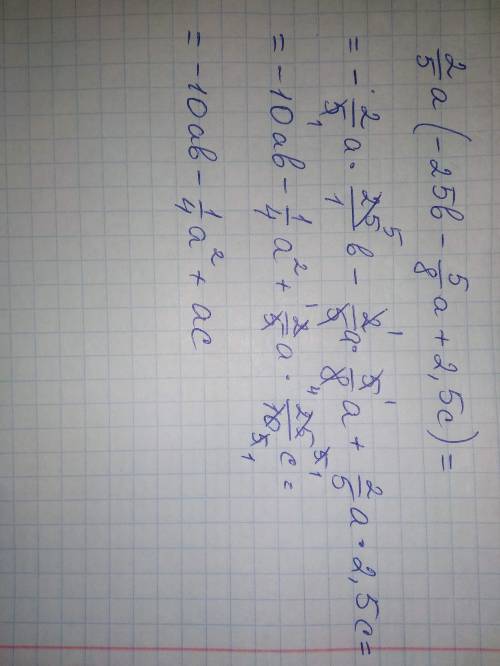 2/5 a (-25b - 5/8 a + 2,5c) =
= - 2/5 a · 25/1 b - 2/5 a · 5/8 a + 2/5 a · 2,5c =
= -10ab - 1/4 a² + 2/5 a · 25/10 c =
= -10ab - 1/4 a² + ac